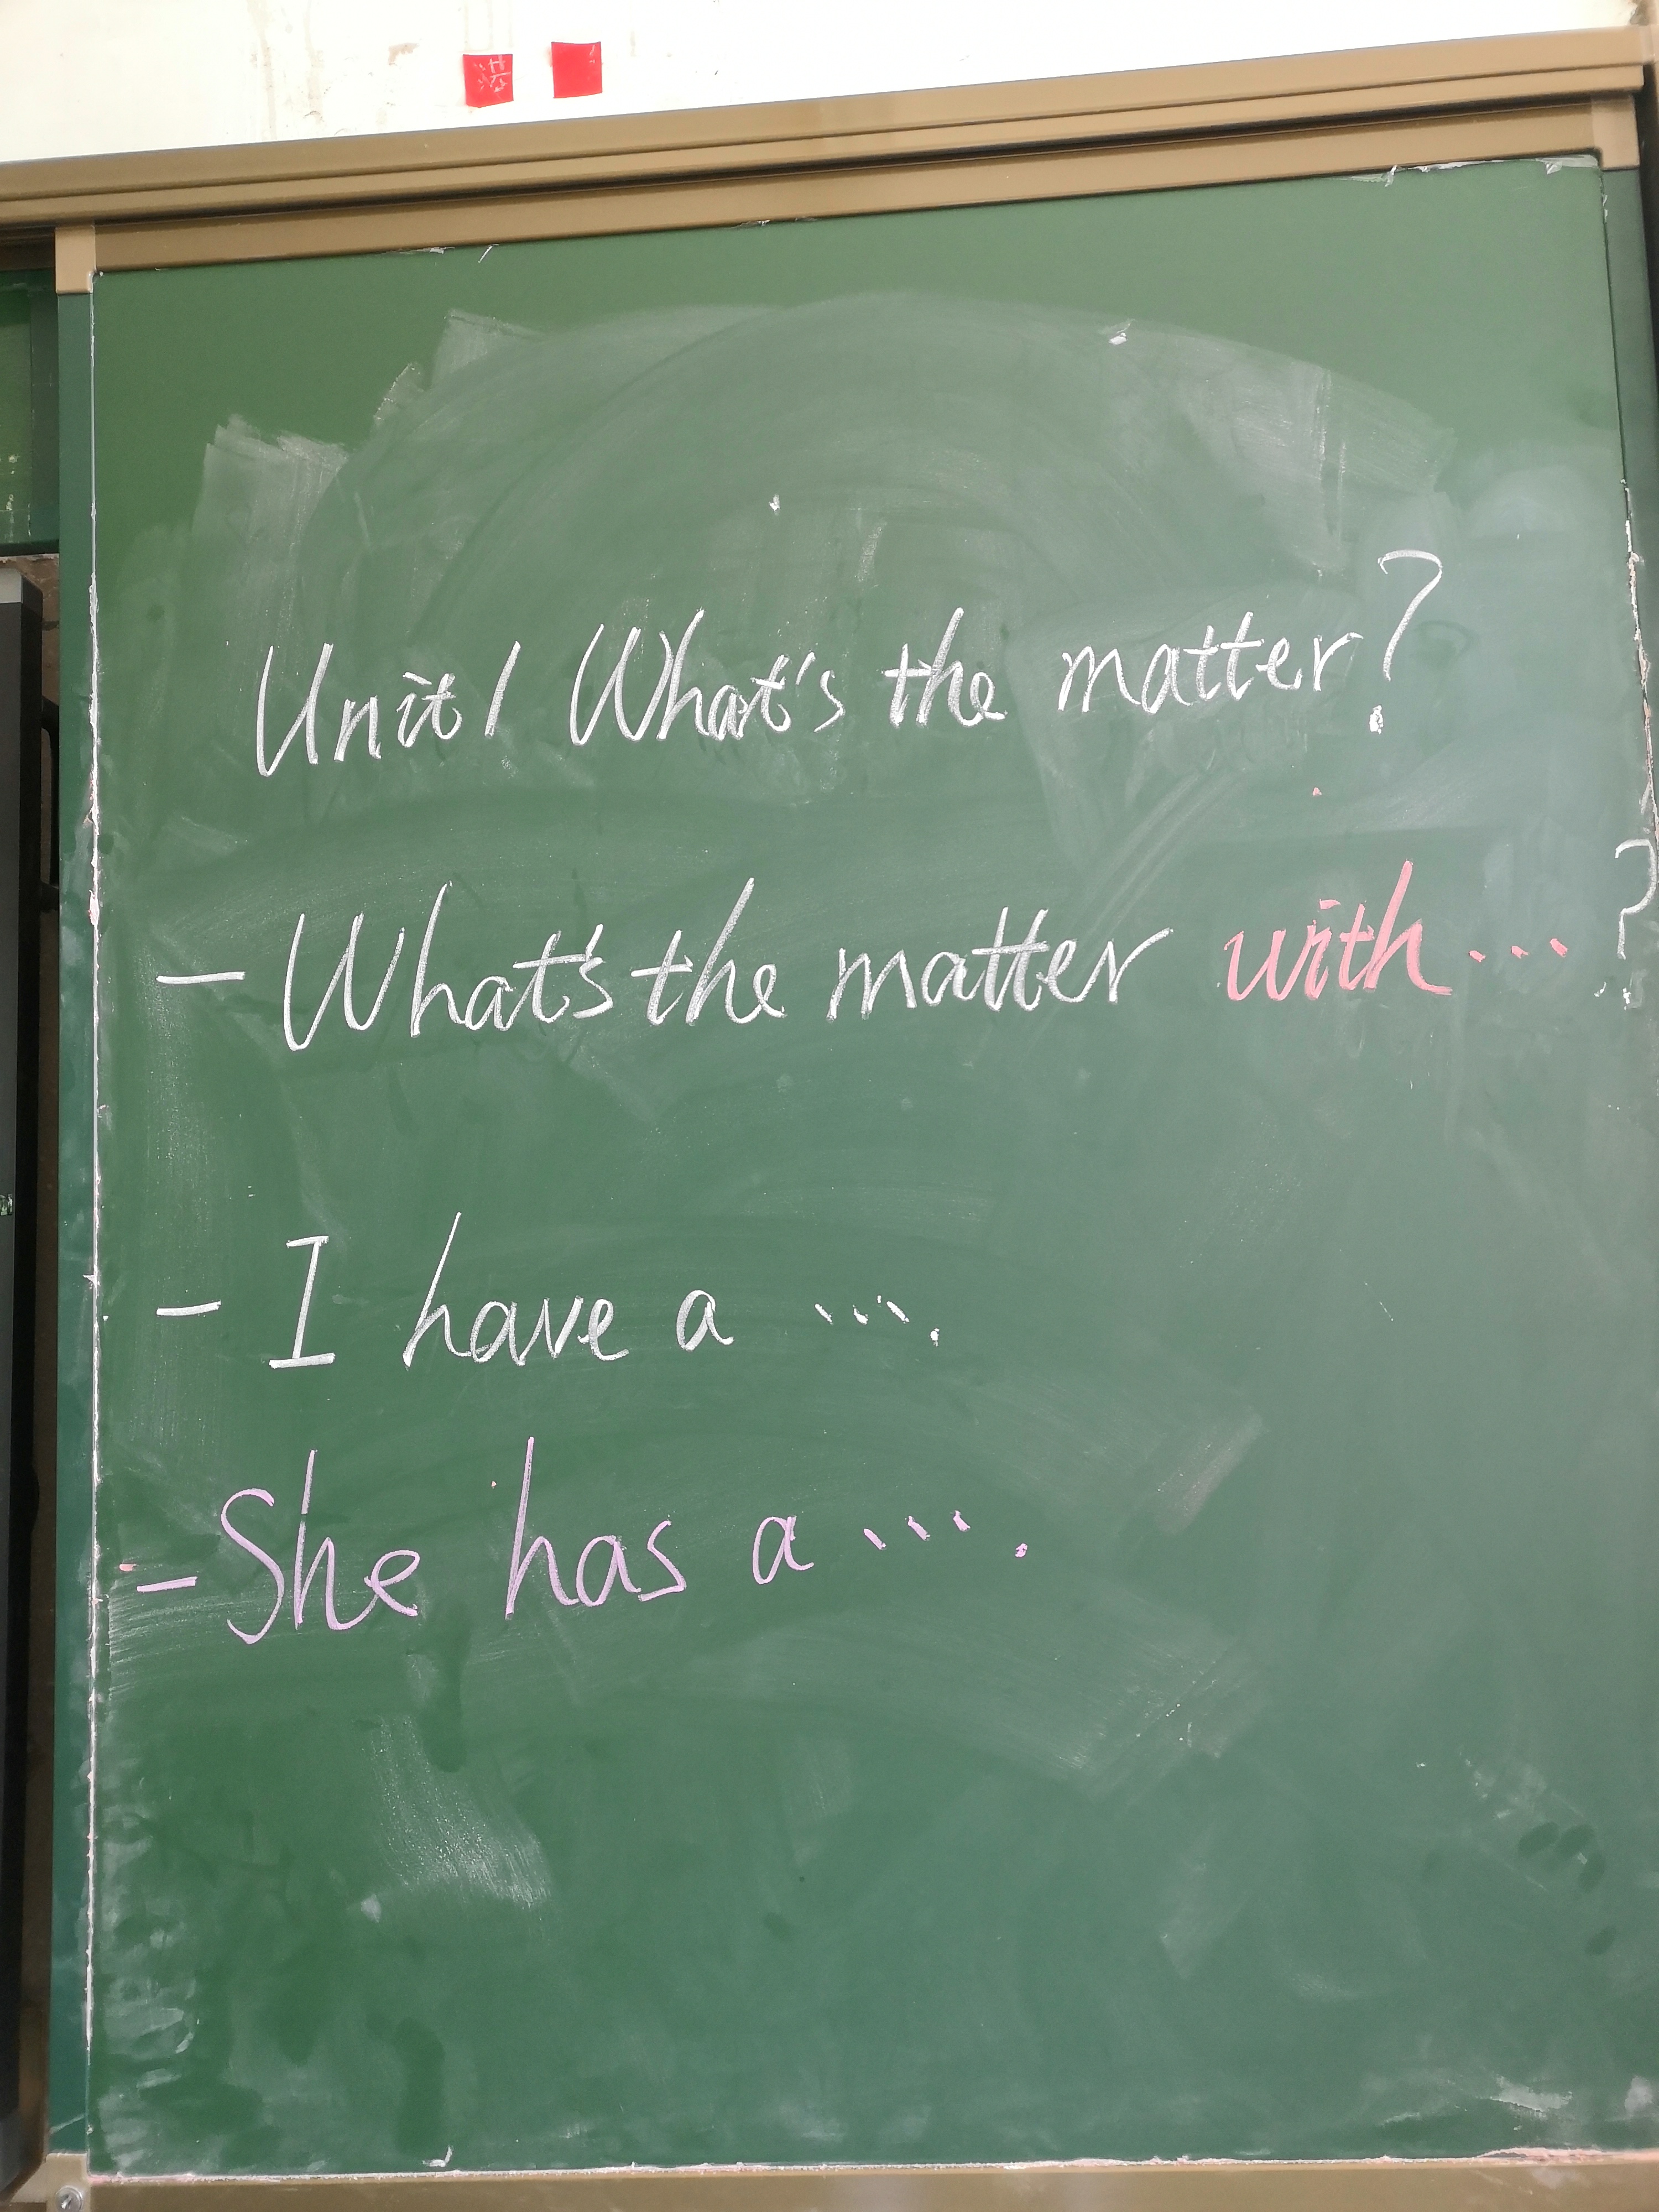 Unit 1 What's the matter?
- What's the matter with...?
- I have a ....
- She has a ....